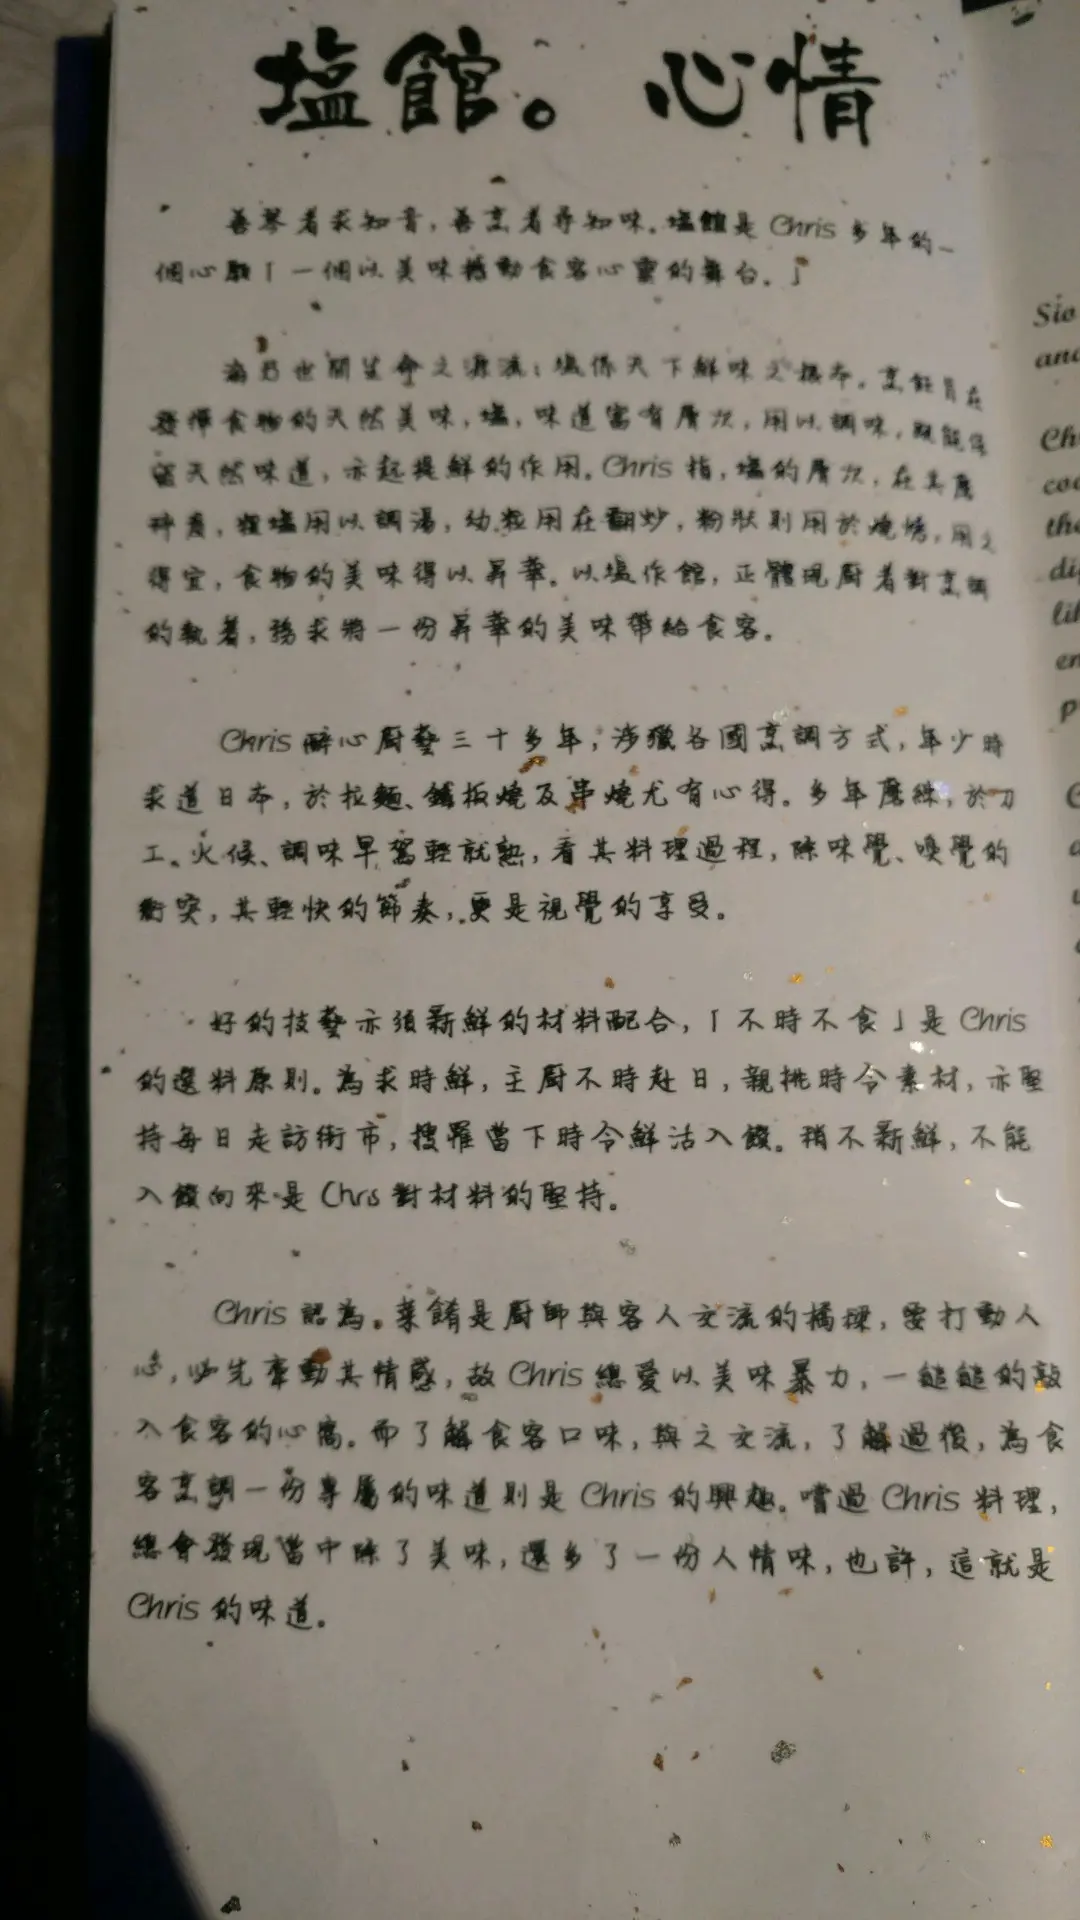 塩館。心情
善琴者求知音，善烹者尋知味。塩館是 Chris 多年的一
個心願「一個以美味撼動食客心靈的舞台。」
海乃世間生命之源流；塩係天下鮮味之根本。烹飪旨在
發揮食物的天然美味，塩，味道富有層次，用以調味，既能保
留天然味道，亦起提鮮的作用。Chris 指，塩的層次，在其
粗塩用以調湯，幼粒用在翻炒，粉狀則用於燒烤，用之
得宜，食物的美味得以昇華。以塩作館，正體現廚者對烹調
的執著，務求將一份昇華的美味帶給食客。
Chris 醉心廚藝三十多年，涉獵各國烹調方式，年少時
求道日本，於拉麵、鐵板燒及串燒尤有心得。多年磨練，於刀
工、火候、調味早駕輕就熟，看其料理過程，除味覺、嗅覺的
衝突，其輕快的節奏，更是視覺的享受。
好的技藝亦須新鮮的材料配合，「不時不食」是 Chris
的選料原則。為求時鮮，主廚不時赴日，親挑時令素材，亦堅
持每日走訪街市，搜羅當下時令鮮活入饌。稍不新鮮，不能
入饌向來是 Chris 對材料的堅持。
Chris 認為。菜餚是廚師與客人交流的橋樑，要打動人
心，必先牽動其情感，故 Chris 總愛以美味暴力，一鎚鎚的敲
入食客的心窩。而了解食客口味，與之交流，了解過後，為食
客烹調一份專屬的味道則是 Chris 的興趣。嚐過 Chris 料理，
總會發現當中除了美味，還多了一份人情味，也許，這就是
Chris 的味道。
Sio
and
Ch
coo
the
di
lik
en
p